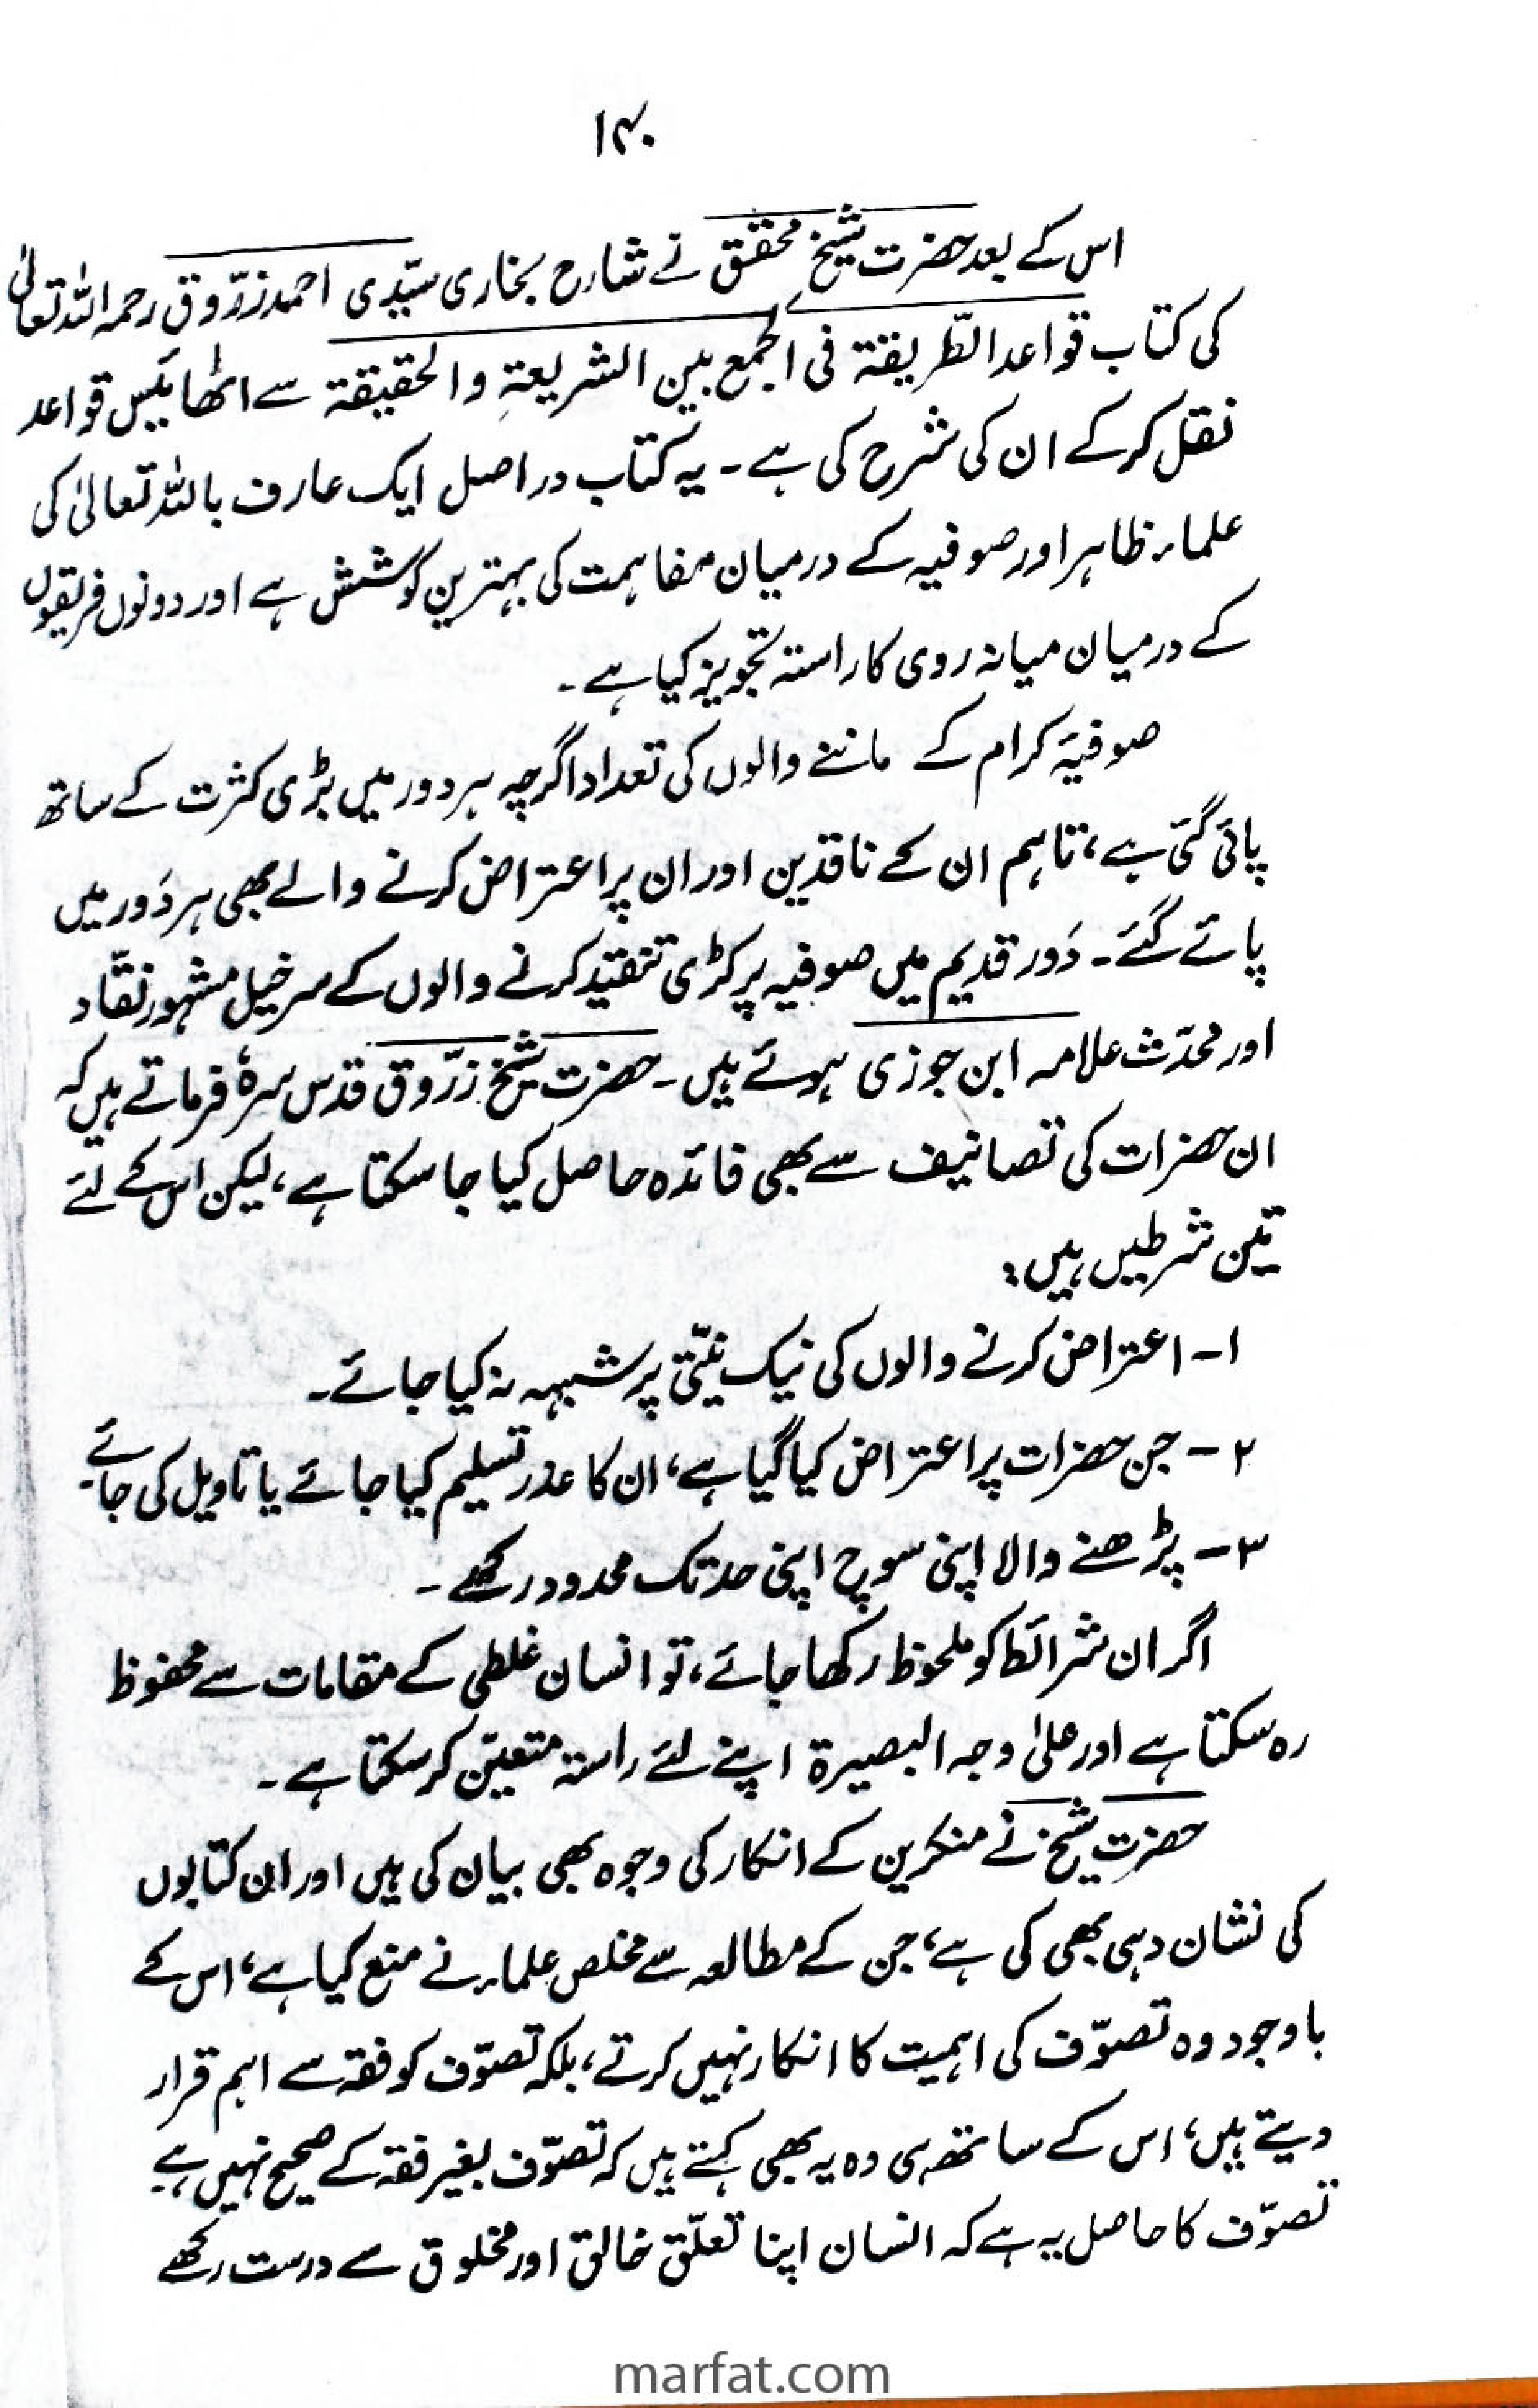 ۱۴۰
اس کے بعد حضرت شیخ محقق نے شارح بخاری سیّدی احمد زرّوق رحمہ اللہ تعالیٰ
کی کتاب قواعد الطّریقۃ فی الجمع بین الشریعۃِ والحقیقۃ سے اٹھائیس قواعد
نقل کر کے ان کی شرح کی ہے۔ یہ کتاب دراصل ایک عارف باللہ تعالیٰ کی
علماء ظاہر اور صوفیہ کے درمیان مفاہمت کی بہترین کوشش ہے اور دونوں فریقوں
کے درمیان میانہ روی کا راستہ تجویز کیا ہے۔
صوفیۂ کرام کے ماننے والوں کی تعداد اگرچہ ہر دور میں بڑی کثرت کے ساتھ
پائی گئی ہے، تاہم ان کے ناقدین اور ان پر اعتراض کرنے والے بھی ہر دَور میں
پائے گئے۔ دَور قدیم میں صوفیہ پر کڑی تنقید کرنے والوں کے سرخیل مشہور نقّاد
اور محدّث علامہ ابن جوزی ہوئے ہیں۔ حضرت شیخ زرّوق قدس سرہٗ فرماتے ہیں کہ
ان حضرات کی تصانیف سے بھی فائدہ حاصل کیا جا سکتا ہے، لیکن اس کے لئے
تین شرطیں ہیں:
۱۔ اعتراض کرنے والوں کی نیک نیّتی پر شبہہ نہ کیا جائے۔
۲۔ جن حضرات پر اعتراض کیا گیا ہے، ان کا عذر تسلیم کیا جائے یا تاویل کی جائے۔
۳۔ پڑھنے والا اپنی سوچ اپنی حد تک محدود رکھے۔
اگر ان شرائط کو ملحوظ رکھا جائے، تو انسان غلطی کے مقامات سے محفوظ
رہ سکتا ہے اور علیٰ وجہ البصیرۃ اپنے لئے راستہ متعیّن کر سکتا ہے۔
حضرت شیخ نے منکرین کے انکار کی وجوہ بھی بیان کی ہیں اور ان کتابوں
کی نشان دہی بھی کی ہے، جن کے مطالعہ سے مخلص علماء نے منع کیا ہے، اس کے
باوجود وہ تصوّف کی اہمیت کا انکار نہیں کرتے، بلکہ تصوّف کو فقہ سے اہم قرار
دیتے ہیں، اس کے ساتھ ہی وہ یہ بھی کہتے ہیں کہ تصوّف بغیر فقہ کے صحیح نہیں ہے۔
تصوّف کا حاصل یہ ہے کہ انسان اپنا تعلّق خالق اور مخلوق سے درست رکھے
marfat.com